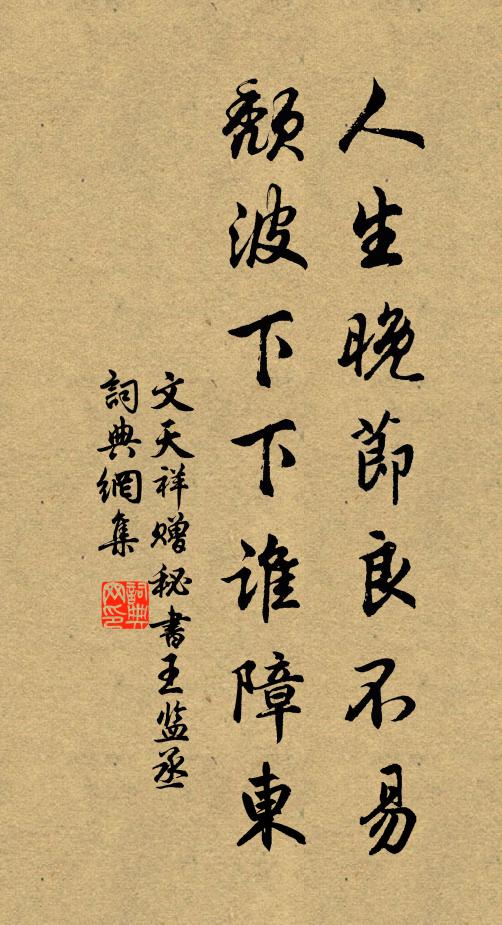 人生晚節良不易
頹波下下誰障東
文天祥赠秘書王监丞
詞典網集
詞典
网印